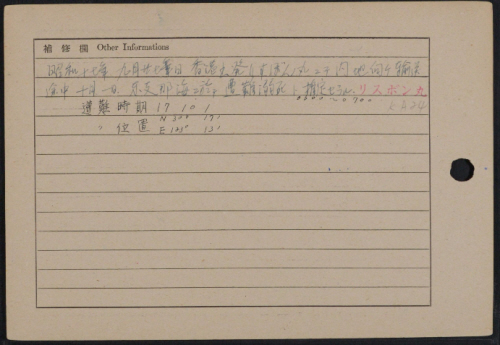 補修欄 Other Informations
昭和十七年九月廿七日香港出発りすぼん丸ニテ内地向ケ輸送
途中十月一日東支那海ニ於テ遭難溺死ト推定セラル リスボン丸
遭難時期 17 10 1 0300〜0700
〃 位置 N 30° 17'
E 123° 13'